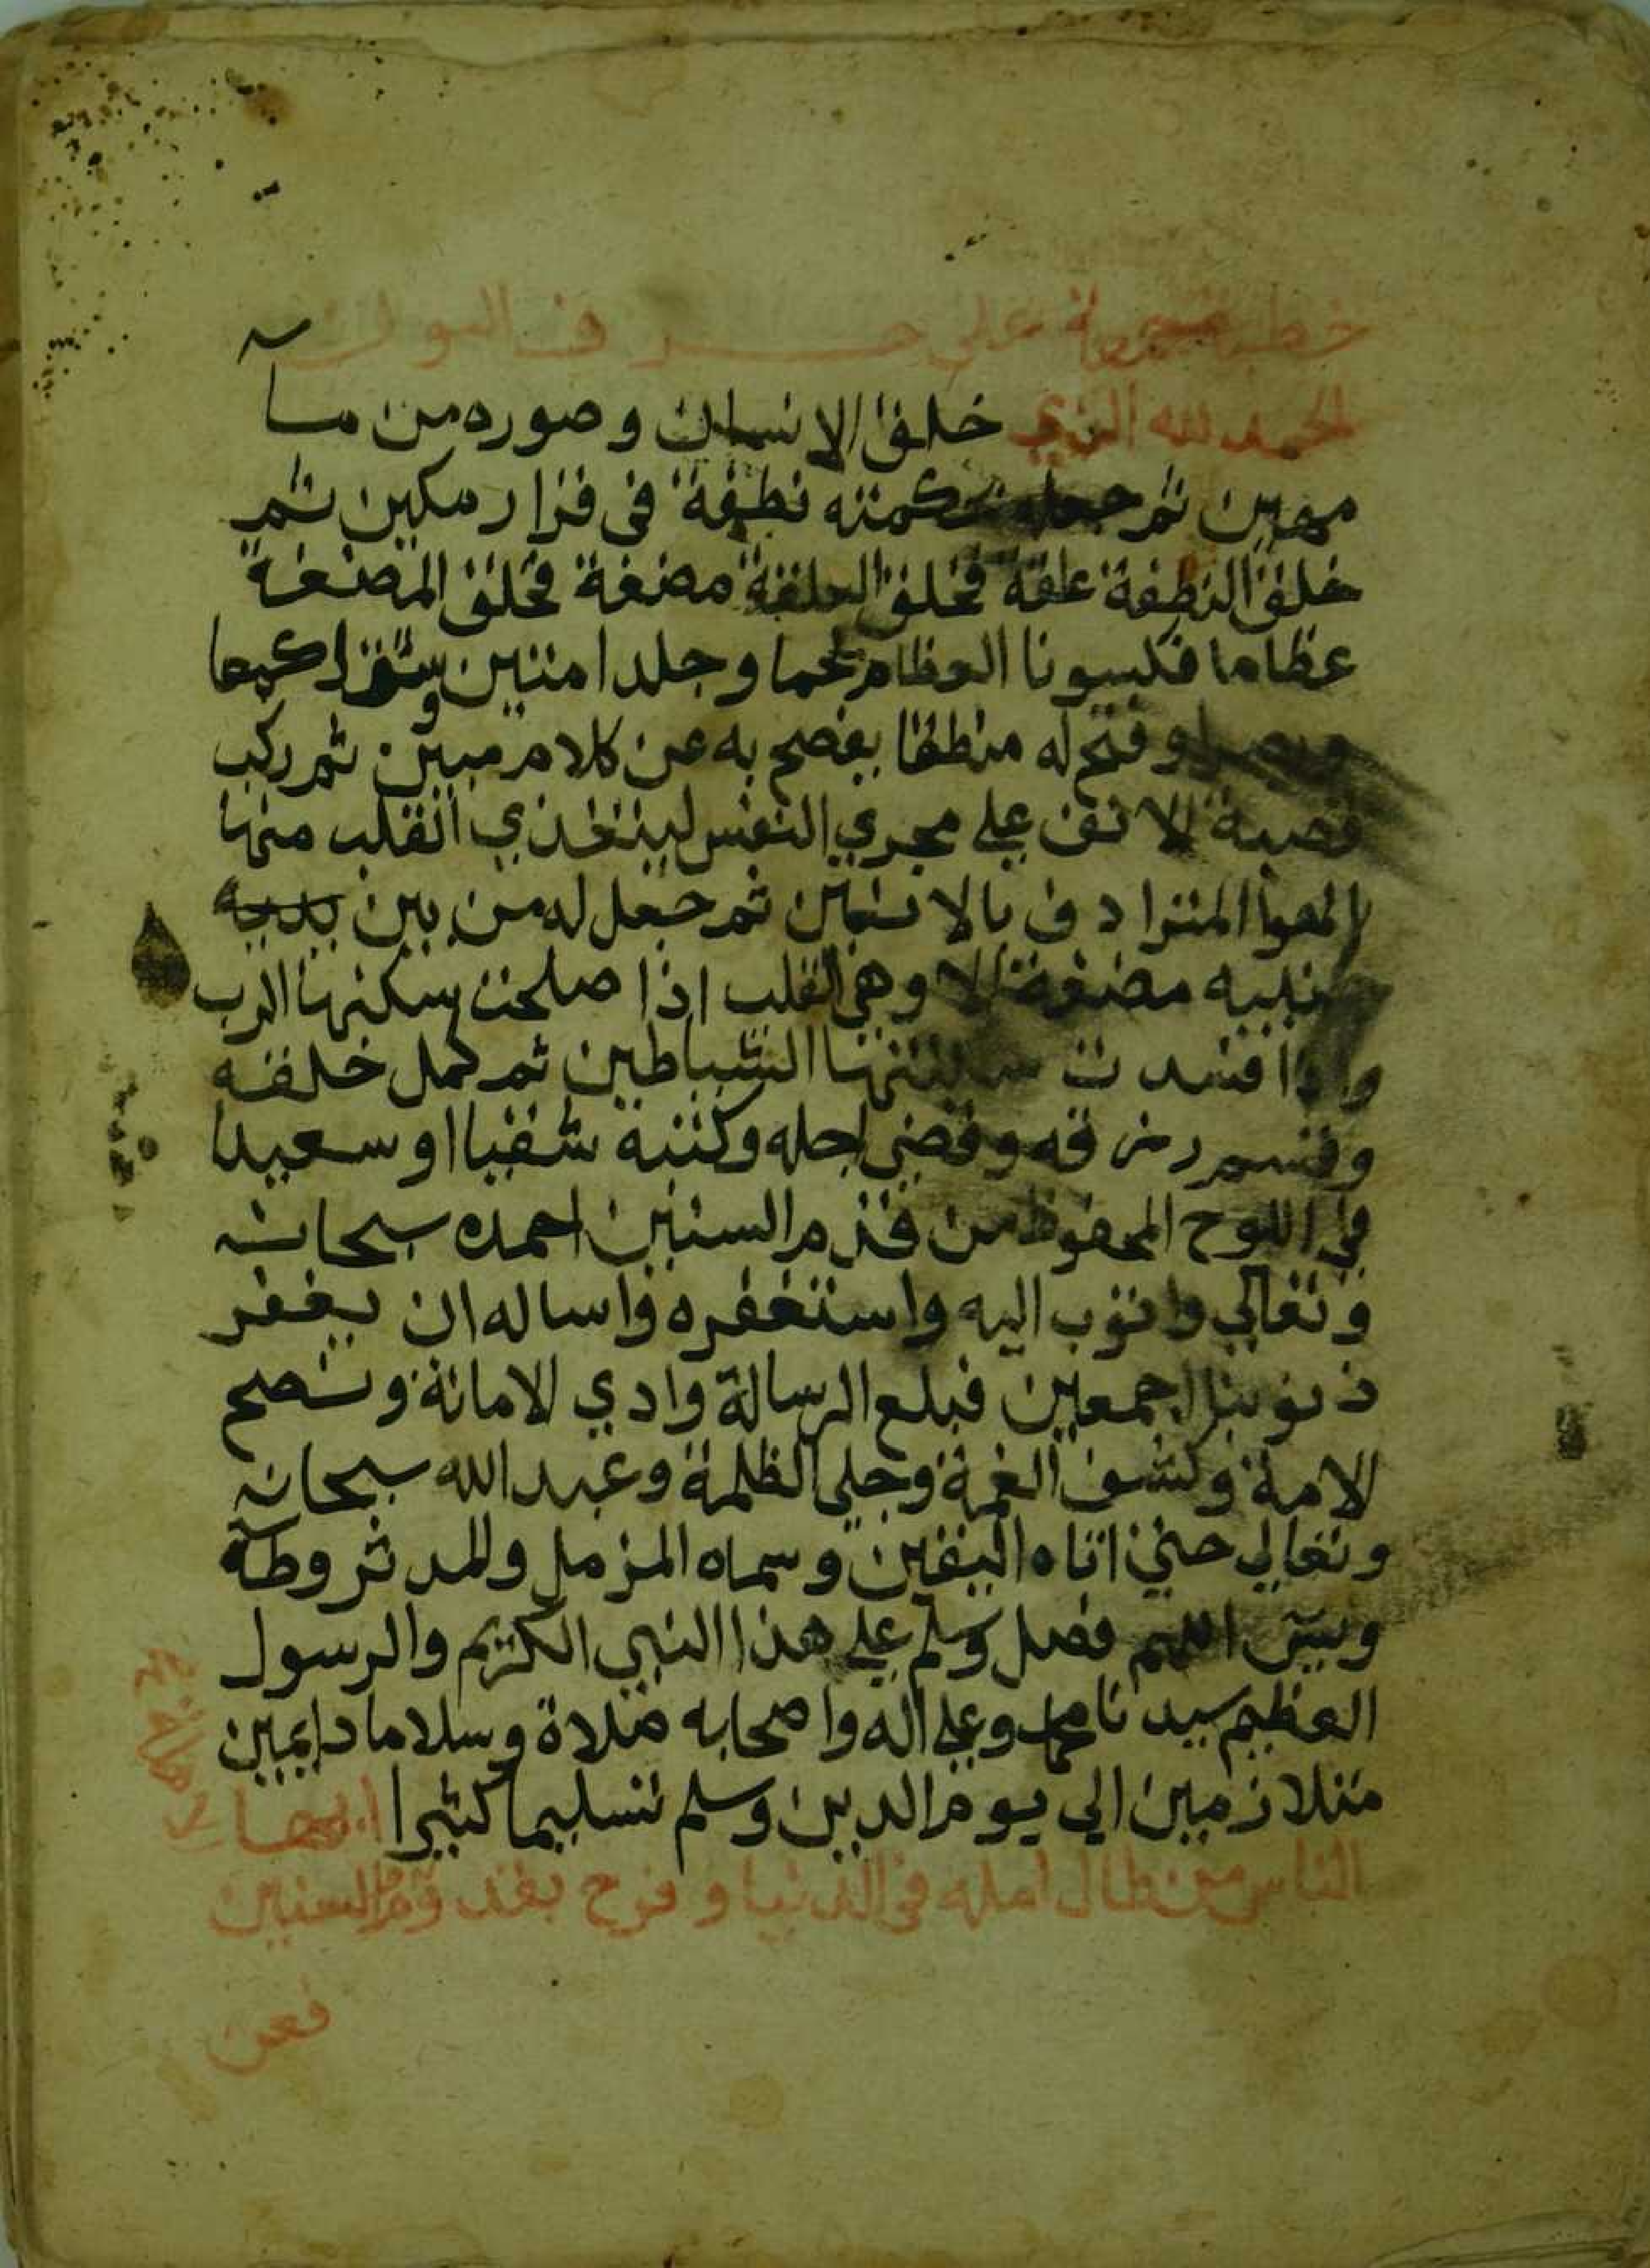 خطبة جمعة على حرف النون
الحمد لله الذي خلق الانسان وصوره من مآ
مهين ثم جعله بحكمته نطفة في قرار مكين ثم
خلق النطفة علقة فخلق العلقة مضغة فخلق المضغة
عظاما فكسونا العظام لحما وجلدا متين وشق له سمعا
وبصرا وفتح له منطقا يفصح به عن كلام مبين ثم ركب
قصبة الانف على مجري النفس ليتغذي القلب منها
الهوا المترادف بالانسين ثم جعل له من بين يديه
جنبيه مضغة الا وهي القلب اذا صلحت سكنها الرب
واذا فسدت سكنتها الشياطين ثم كمل خلقه
وقسم رزقه وقضى اجله وكتبه شقيا او سعيدا
في اللوح المحفوظ من قدم السنين احمده سبحانه
وتعالي واتوب اليه واستغفره واساله ان يغفر
ذنوبنا اجمعين فبلغ الرسالة وادي الامانة ونصح
الامة وكشف الغمة وجلى الظلمة وعبد الله سبحانه
وتعالي حتي اتاه اليقين وسماه المزمل والمدثر وطه
ويس اللهم فصل وسلم على هذا النبي الكريم والرسول
العظيم سيدنا محمد وعلى اله واصحابه صلاة وسلاما دايمين
متلازمين الي يوم الدين وسلم تسليما كثيرا ايها
الناس من طال امله في الدنيا وفرح بقدوم السنين
فعن